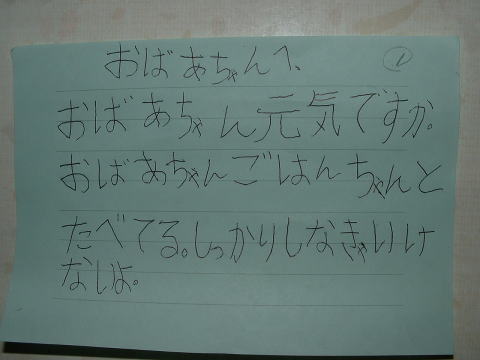 おばあちゃんへ、
おばあちゃん元気ですか。
おばあちゃんごはんちゃんと
たべてる。しっかりしなきゃいけ
ないよ。